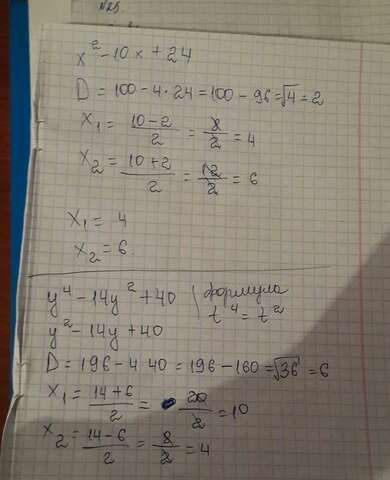 №25.
x² - 10x + 24
D = 100 - 4·24 = 100 - 96 = √4 = 2
x₁ = (10-2)/2 = 8/2 = 4
x₂ = (10+2)/2 = 12/2 = 6
x₁ = 4
x₂ = 6.
y⁴ - 14y² + 40 | формула
t⁴ = t²
y² - 14y + 40
D = 196 - 4·40 = 196 - 160 = √36 = 6
x₁ = (14+6)/2 = 20/2 = 10
x₂ = (14-6)/2 = 8/2 = 4